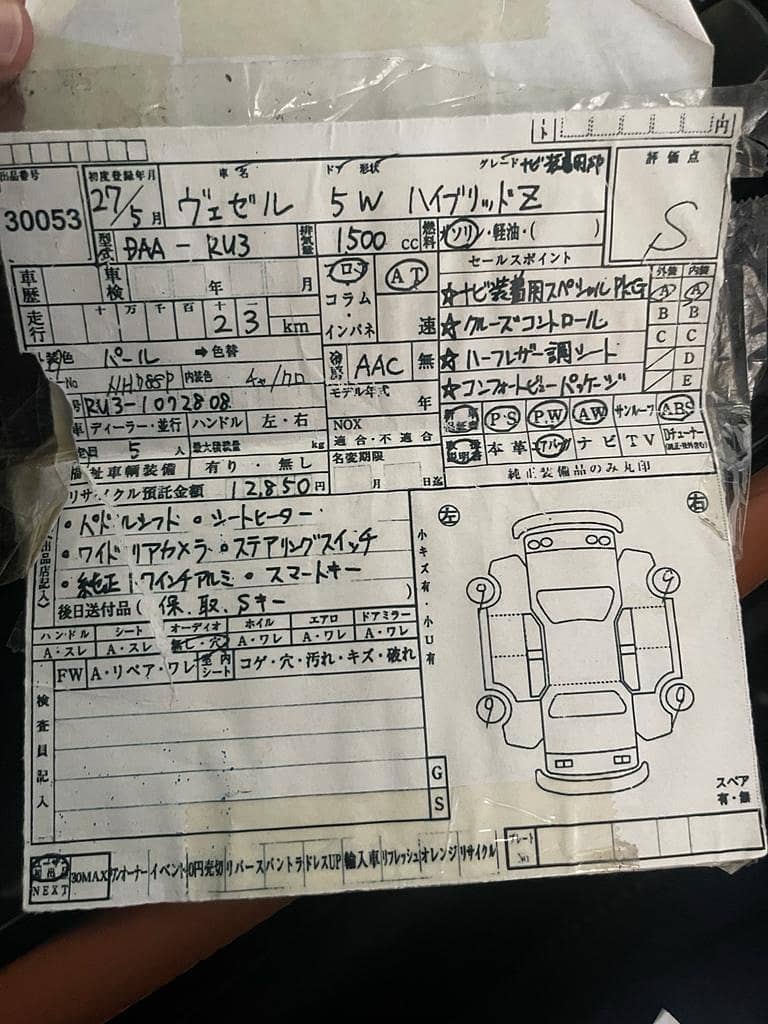 ト 円
出品番号 30053
初度登録年月 27/5月
車名 ヴェゼル
ドア 形状 5W
グレード ナビ装着用SP
ハイブリッドZ
評価点 S
型式 DAA-RU3
排気量 1500cc
燃料 ガソリン・軽油・( )
車歴
車検 年 月
ロー・コラム・インパネ
AT 速
セールスポイント
☆ナビ装着用スペシャルPKG
☆クルーズコントロール
☆ハーフレザー調シート
☆コンフォートビューパッケージ
外装 内装
A A
B B
C C
D
E
走行 十万千百十一
23 km
外装色 パール ➡色替
NH788P 内装色 チャ/クロ
冷房 AAC 無
モデル年式 年
RU3-1072808
車 ディーラー・並行 ハンドル 左・右
NOX 適合・不適合
定員 5人 最大積載量 kg
名変期限 月 日迄
福祉車輌装備 有り・無し
リサイクル預託金額 12,850円
新車保証書 P・S P.W AW サンルーフ ABS
取扱説明書 本革 エアバッグ ナビ TV Dチューナー
純正装備品のみ丸印
(出品店記入)
・パドルシフト ・シートヒーター
・ワイドリアカメラ ・ステアリングスイッチ
・純正17インチアルミ ・スマートキー
後日送付品( 保、取、Sキー )
ハンドル シート オーディオ ホイル エアロ ドアミラー
A・スレ A・スレ 無し・穴 A・ワレ A・ワレ A・ワレ
FW A・リペア・ワレ 室内シート コゲ・穴・汚れ・キズ・破れ
小キズ有・小U有
検査員記入
G
S
左 右
9 9
9 9
スペア 有・無
NEXT 30MAX ワンオーナー イベント 0円売切 リバース バントラ ドレスUP 輸入車 リフレッシュ オレンジ リサイクル
プレートNo